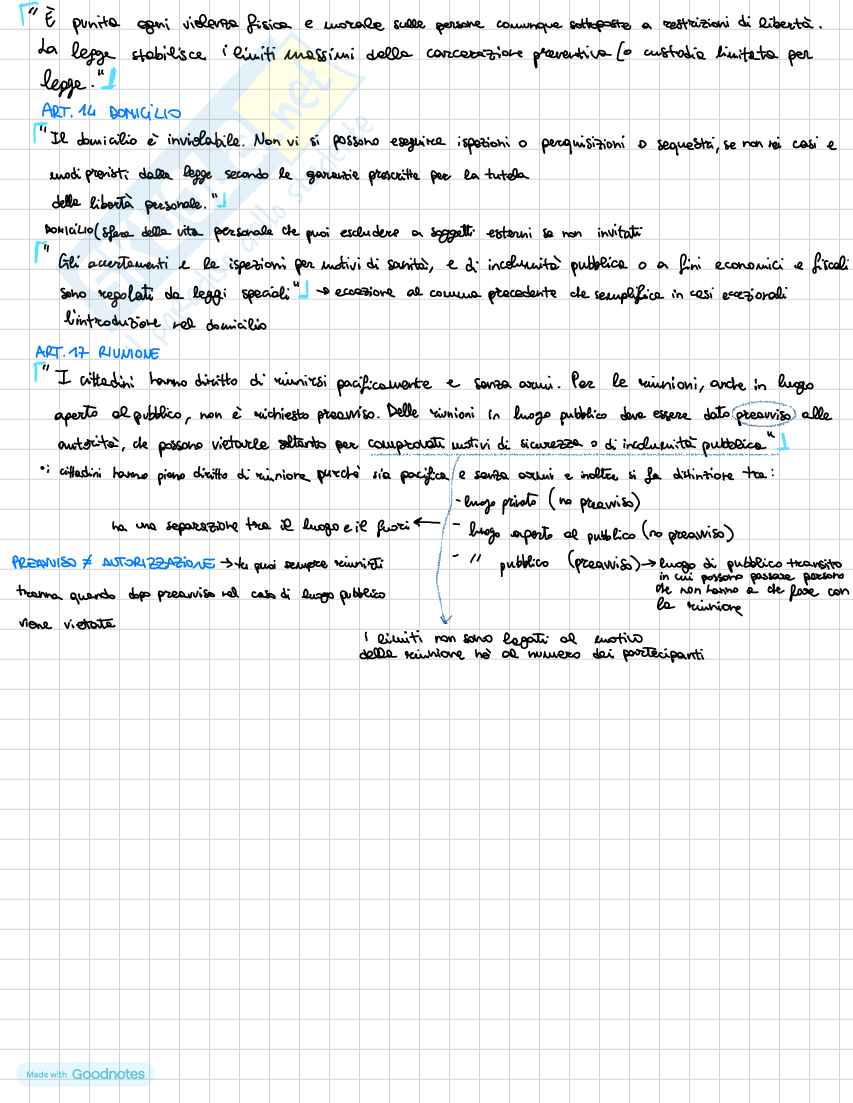 "È punita ogni violenza fisica e morale sulle persone comunque sottoposte a restrizioni di libertà.
La legge stabilisce i limiti massimi della carcerazione preventiva [o custodia limitata per
legge."
ART. 14 DOMICILIO
"Il domicilio è inviolabile. Non vi si possono eseguire ispezioni o perquisizioni o sequestri, se non nei casi e
modi previsti dalla legge secondo le garanzie prescritte per la tutela
della libertà personale."
DOMICILIO (sfera della vita personale che puoi escludere a soggetti esterni se non invitati
"Gli accertamenti e le ispezioni per motivi di sanità, e di incolumità pubblica o a fini economici e fiscali
sono regolati da leggi speciali" → eccezione al comma precedente che semplifica in casi eccezionali
l'introduzione nel domicilio
ART. 17 RIUNIONE
"I cittadini hanno diritto di riunirsi pacificamente e senza armi. Per le riunioni, anche in luogo
aperto al pubblico, non è richiesto preavviso. Delle riunioni in luogo pubblico deve essere dato preavviso alle
autorità, che possono vietarle soltanto per comprovati motivi di sicurezza o di incolumità pubblica"
•i cittadini hanno pieno diritto di riunione purché sia pacifica e senza armi e inoltre si fa distinzione tra:
- luogo privato (no preavviso)
ha una separazione tra il luogo e il fuori ← - luogo aperto al pubblico (no preavviso)
- " pubblico (preavviso) → luogo di pubblico transito
in cui possono passare persone
che non hanno a che fare con
la riunione
PREAVVISO ≠ AUTORIZZAZIONE → tu puoi sempre riunirti
tranne quando dopo preavviso nel caso di luogo pubblico
viene vietata
i limiti non sono legati al motivo
della riunione né al numero dei partecipanti
Made with Goodnotes